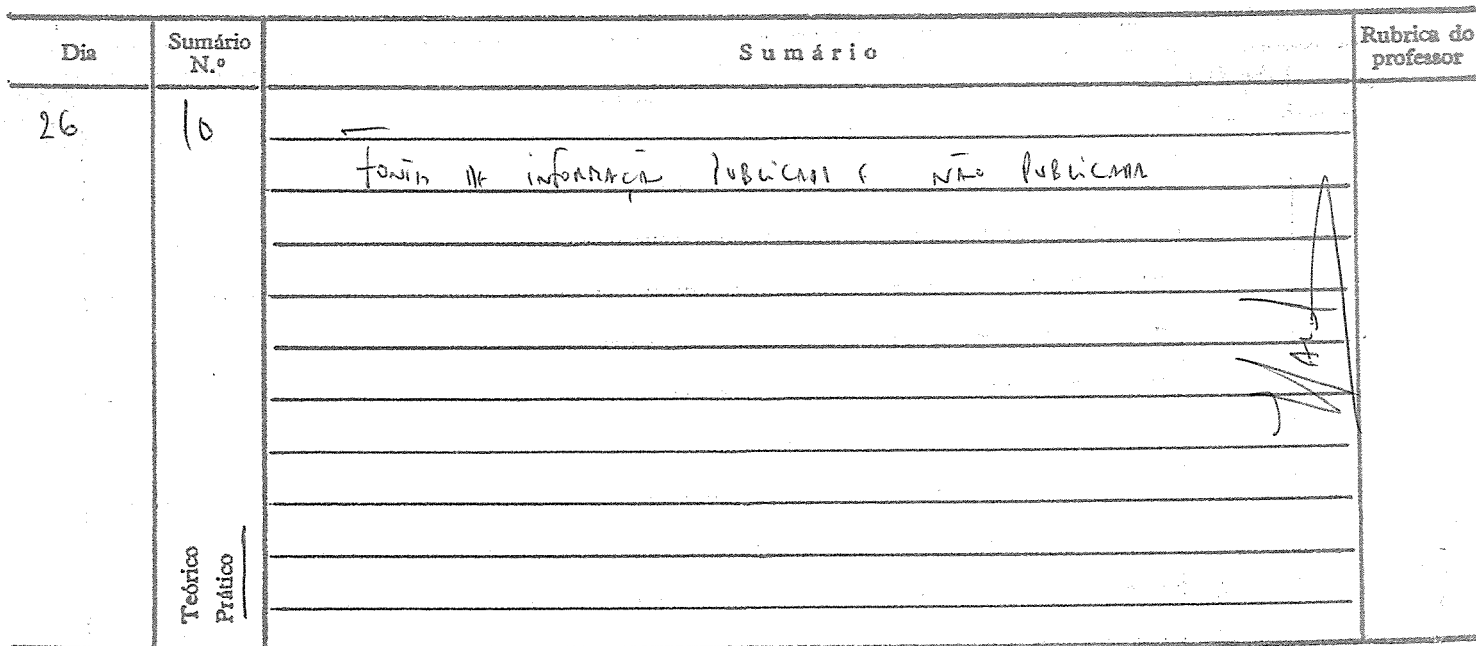 Dia
Sumário N.º
Sumário
Rubrica do professor
26
10
Fontes de informação publicada e não publicada
Teórico
Prático